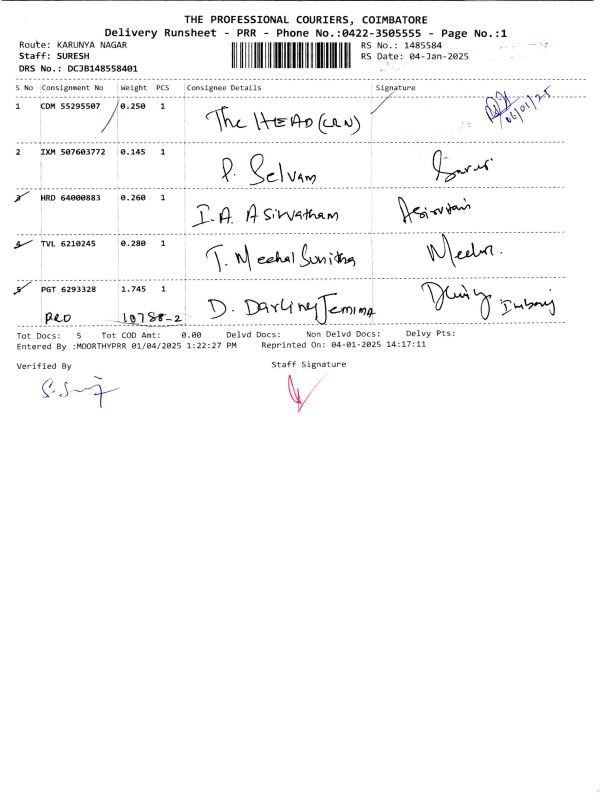 THE PROFESSIONAL COURIERS, COIMBATORE
Delivery Runsheet - PRR - Phone No.:0422-3505555 - Page No.:1
Route: KARUNYA NAGAR
RS No.: 1485584
Staff: SURESH
RS Date: 04-Jan-2025
DRS No.: DCJB148558401
S No Consignment No Weight PCS Consignee Details Signature
1 CDM 55295507 0.250 1 The HEAD (LRN)
06/01/25
2 IXM 507603772 0.145 1 P. Selvam
3 HRD 64000883 0.260 1 I.A. Asirvatham
4 TVL 6210245 0.280 1 T. Meehal Sunitha
5 PGT 6293328 1.745 1 D. Darling Jemima
PRO 10788-2
Tot Docs: 5 Tot COD Amt: 0.00 Delvd Docs: Non Delvd Docs: Delvy Pts:
Entered By :MOORTHYPRR 01/04/2025 1:22:27 PM Reprinted On: 04-01-2025 14:17:11
Verified By Staff Signature